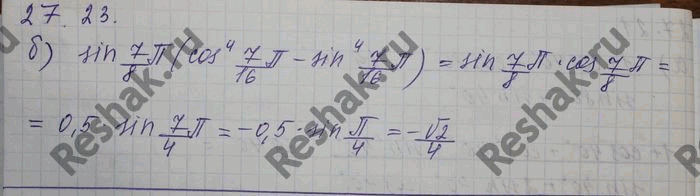 27. 23.
б) sin 7/8 π (cos⁴ 7/16 π - sin⁴ 7/16 π) = sin 7/8 π · cos 7/8 π =
= 0,5 · sin 7/4 π = -0,5 · sin π/4 = - √2/4
Reshak.ru
Reshak.ru
Reshak.ru